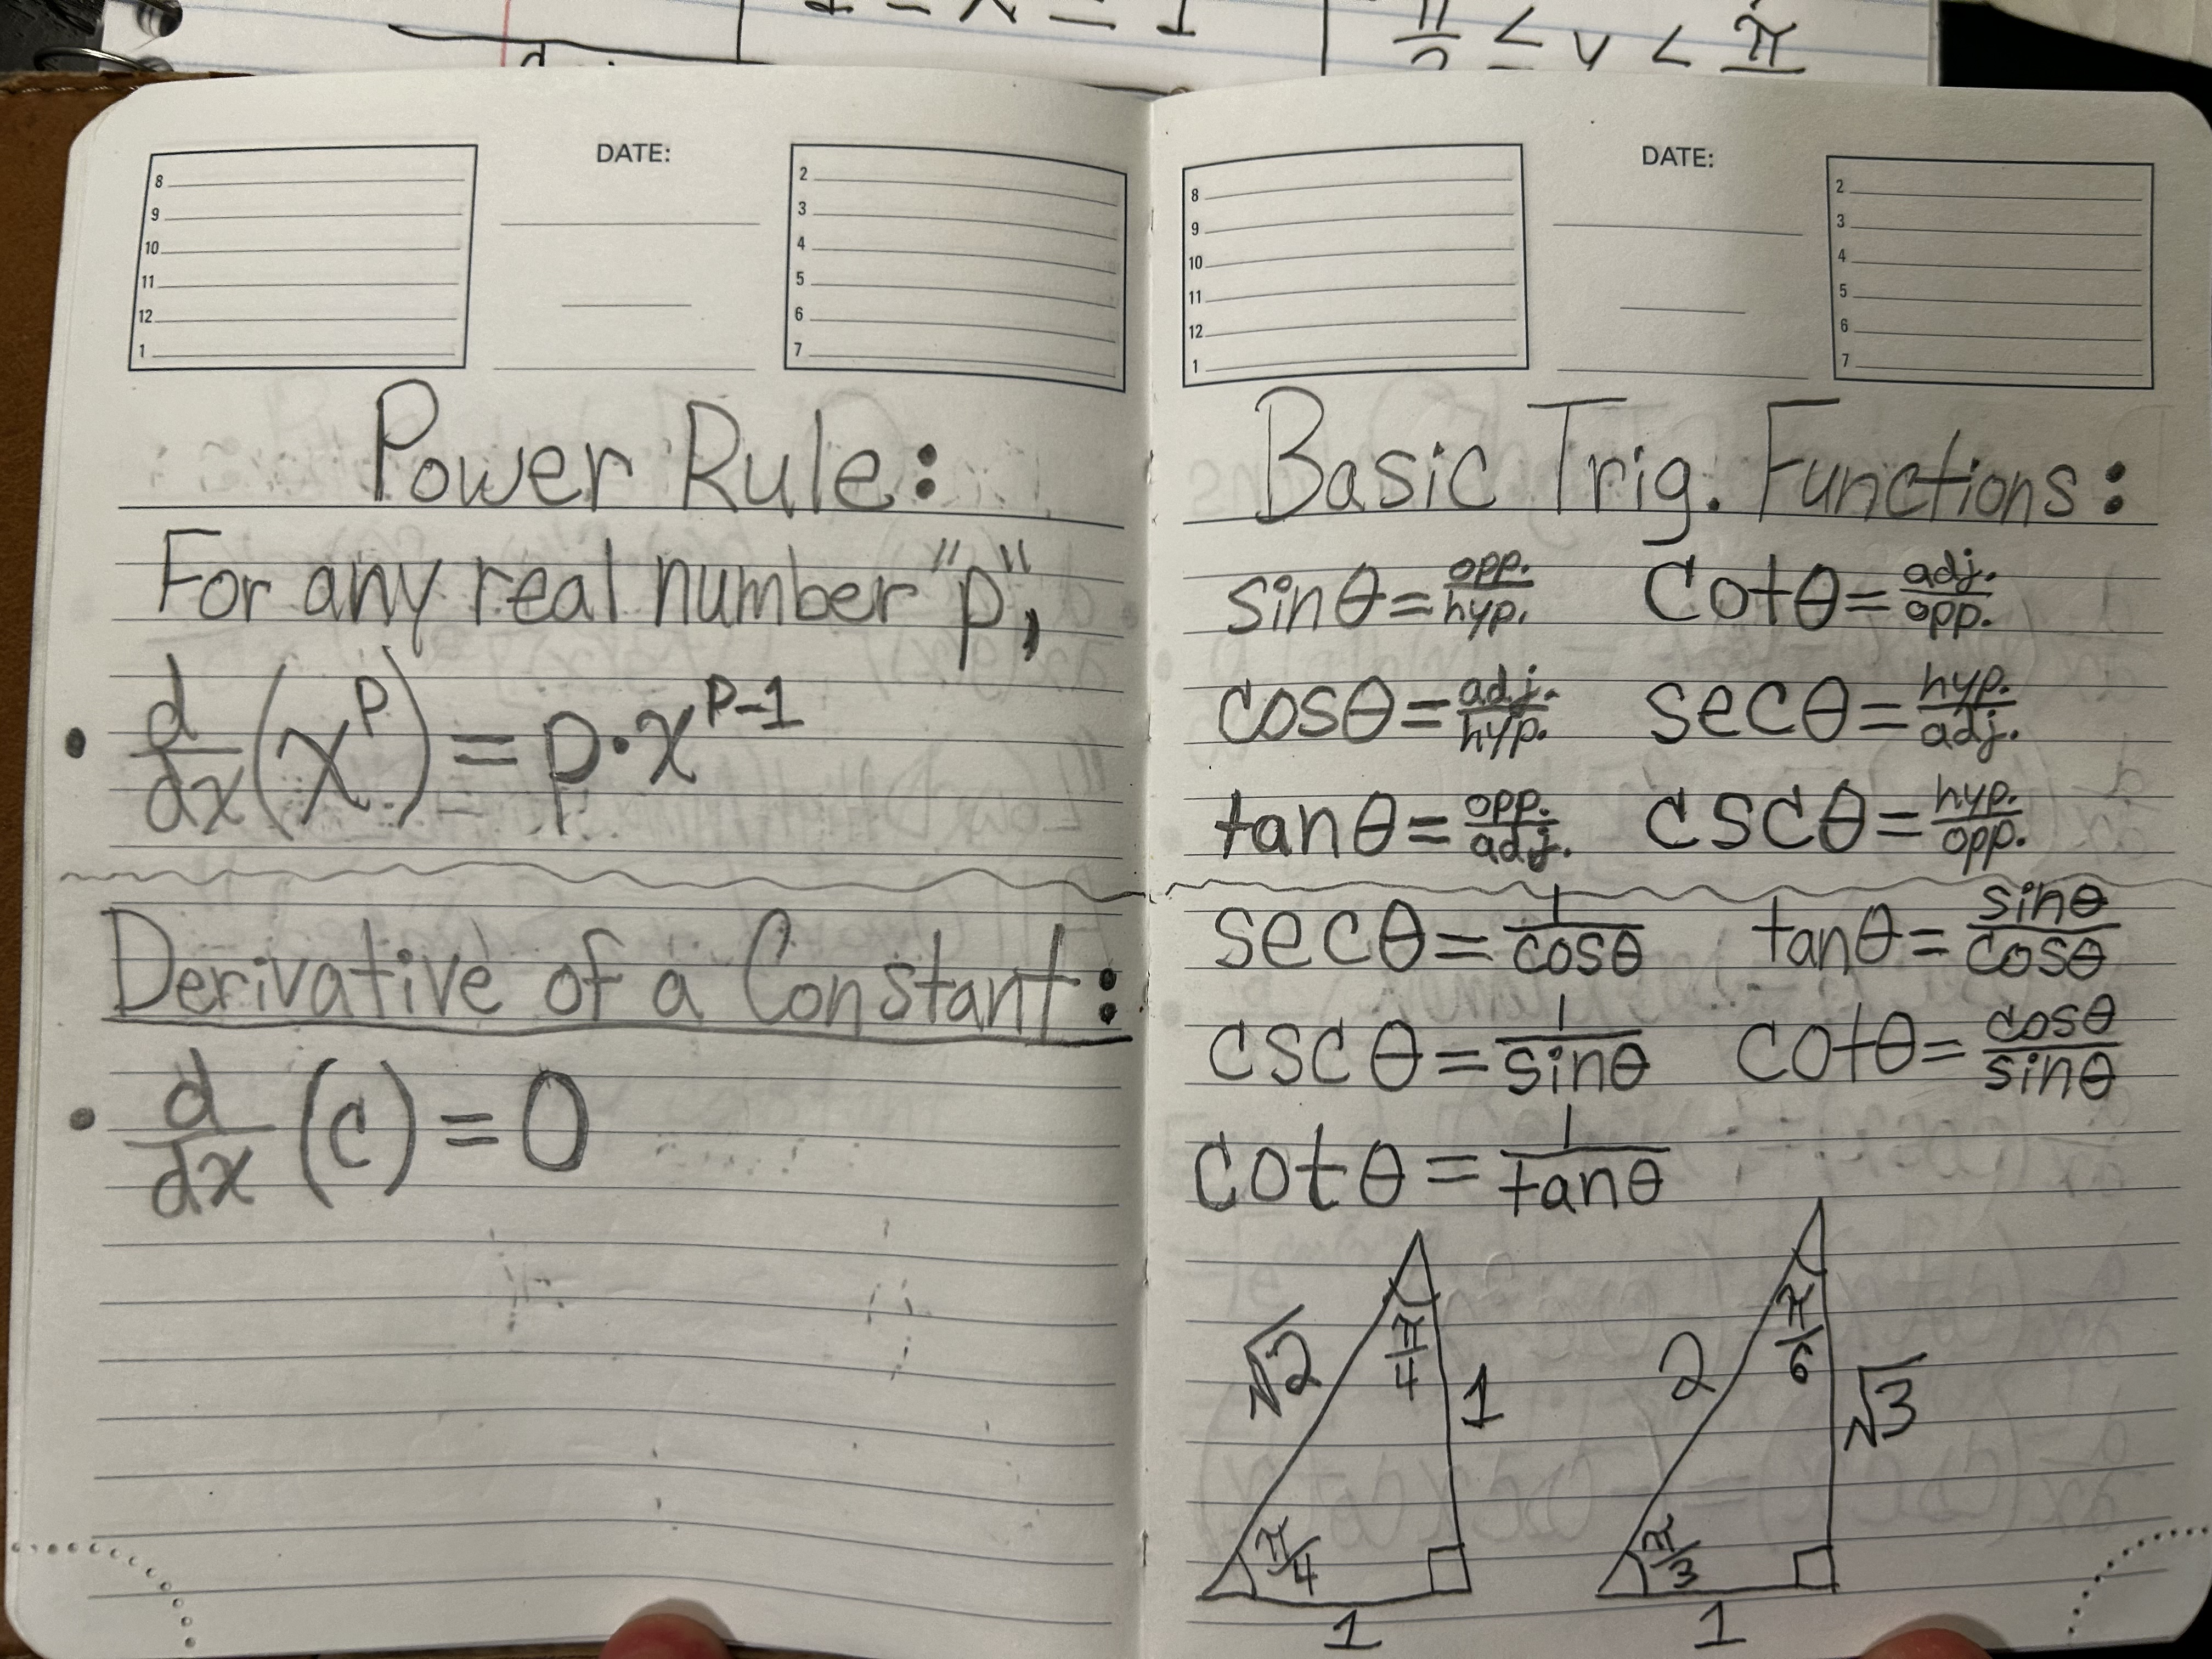 DATE:
8 2
9 3
10 4
11 5
12 6
1 7
Power Rule:
For any real number "p",
• d/dx (x^p) = p·x^(p-1)
Derivative of a Constant:
• d/dx (c) = 0
DATE:
8 2
9 3
10 4
11 5
12 6
1 7
Basic Trig. Functions:
sinθ = opp./hyp. cotθ = adj./opp.
cosθ = adj./hyp. secθ = hyp./adj.
tanθ = opp./adj. cscθ = hyp./opp.
secθ = 1/cosθ tanθ = sinθ/cosθ
cscθ = 1/sinθ cotθ = cosθ/sinθ
cotθ = 1/tanθ
√2 π/4 1 2 π/6 √3
π/4 π/3
1 1